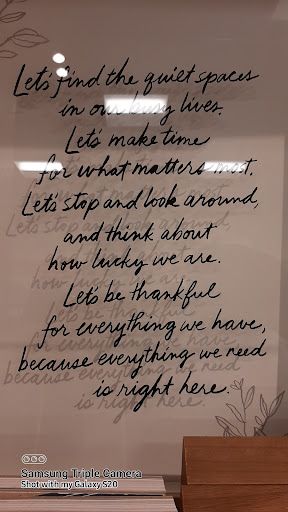 Let's find the quiet spaces
in our busy lives.
Let's make time
for what matters most.
Let's stop and look around,
and think about
how lucky we are.
Let's be thankful
for everything we have,
because everything we need
is right here.
Samsung Triple Camera
Shot with my Galaxy S20